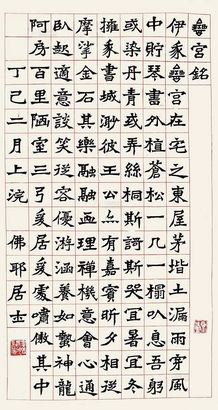 彝宮銘
伊彝宮在宅之東屋茅堦土漏雨穿風
中貯琴書外植蒼松一几一榻以息吾躬
或染丹青或弄絲桐宜暑宜冬
擁彼王公亦有嘉賓夕相
摩挲金石其樂融融畫理禪機意會心通
臥起適意談笑從容優游涵養如蟄神龍
阿房百里陋室三弓爰居爰處嘯傲其中
丁巳二月上浣 佛耶居士